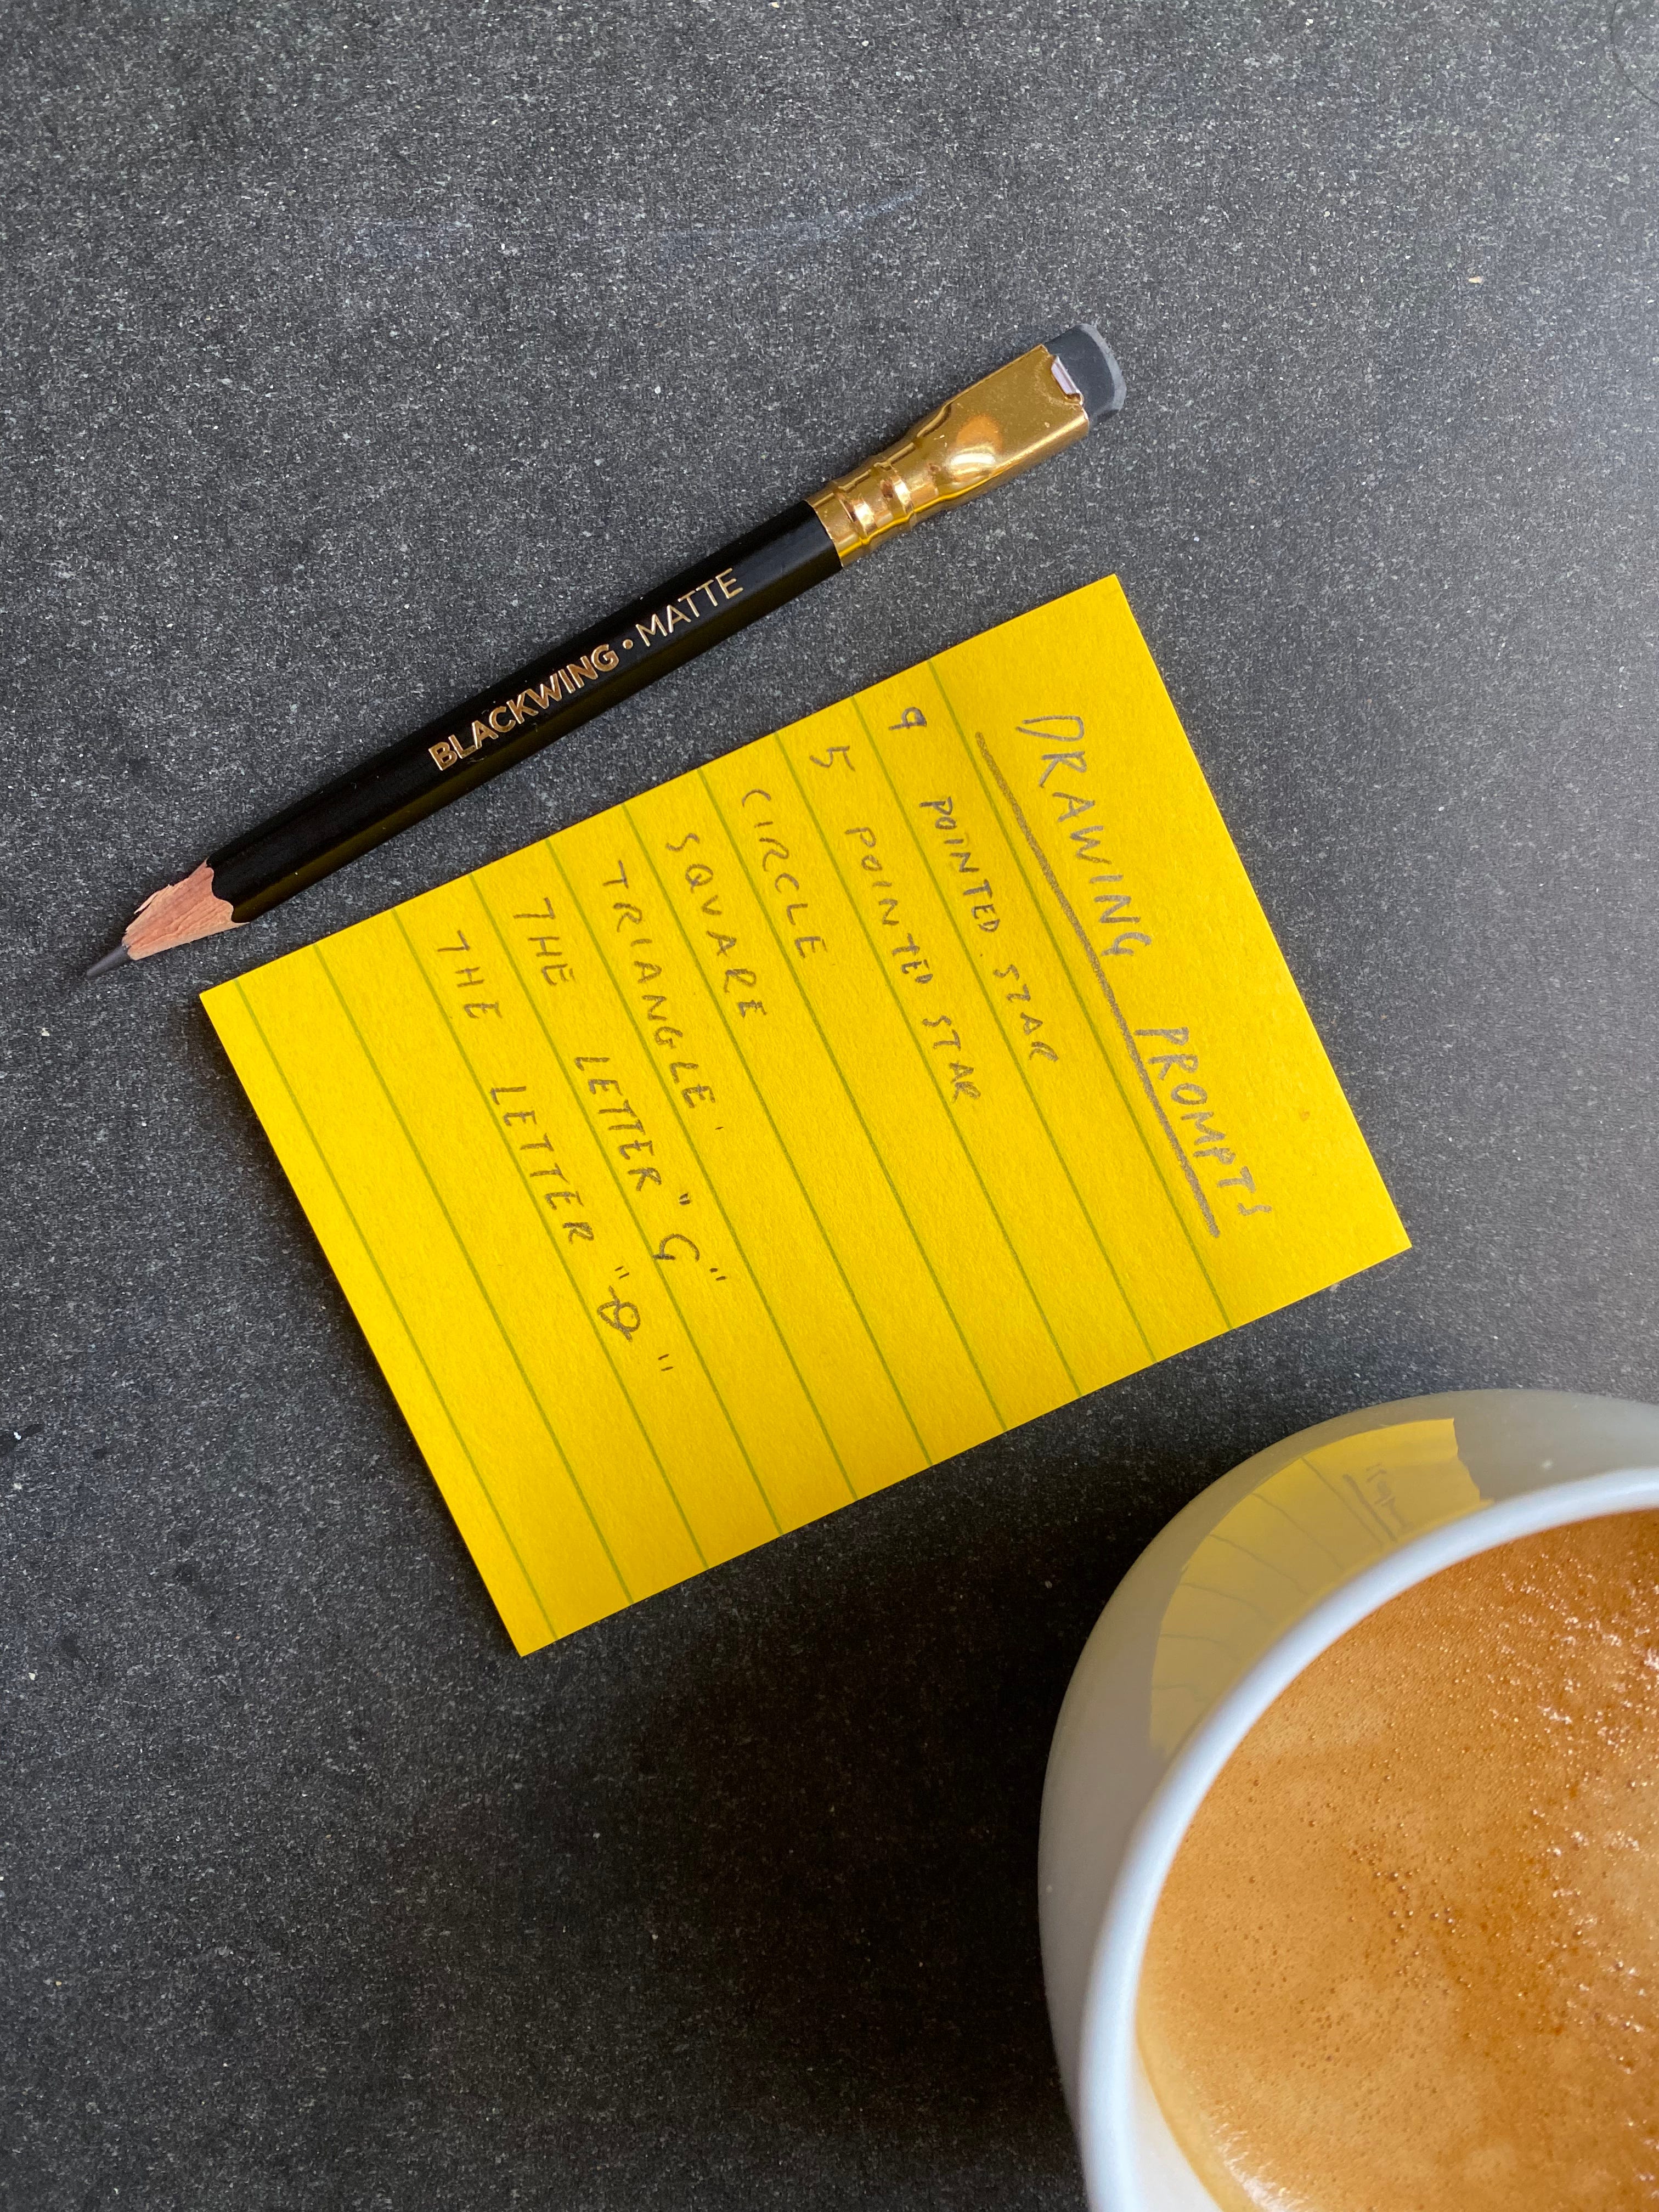 BLACKWING • MATTE
DRAWING PROMPTS
9 POINTED STAR
5 POINTED STAR
CIRCLE
SQUARE
TRIANGLE
THE LETTER "G"
THE LETTER " "